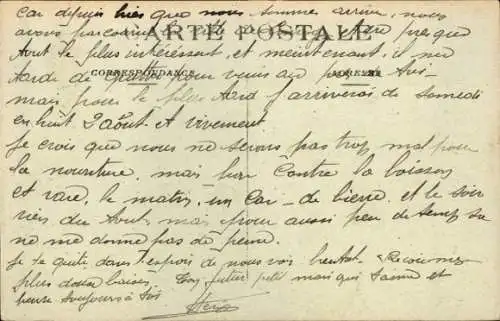 car depuis hier que nous sommes arrivé, nous
avons parcouru
ARTE POSTALE
presque
tout le plus intéressant, et maintenant il me
tarde de pour venir au
CORRESPONDANCE
ADRESSE
mais pour le plus tard j'arriverai de samedi
en huit 2 août. et vivement
je crois que nous ne serons pas trop mal pour
la nourriture, mais par contre la boisson
et rare, le matin, un car de bierre et le soir
rien du tout, mais pour aussi peu de temps sa
ne me donne pas de peine.
je te quitte dans l'espoir de nous voir bientot. Recois mes
plus doux baisers. Ton futur petit mari qui t'aime et
pense toujours à toi